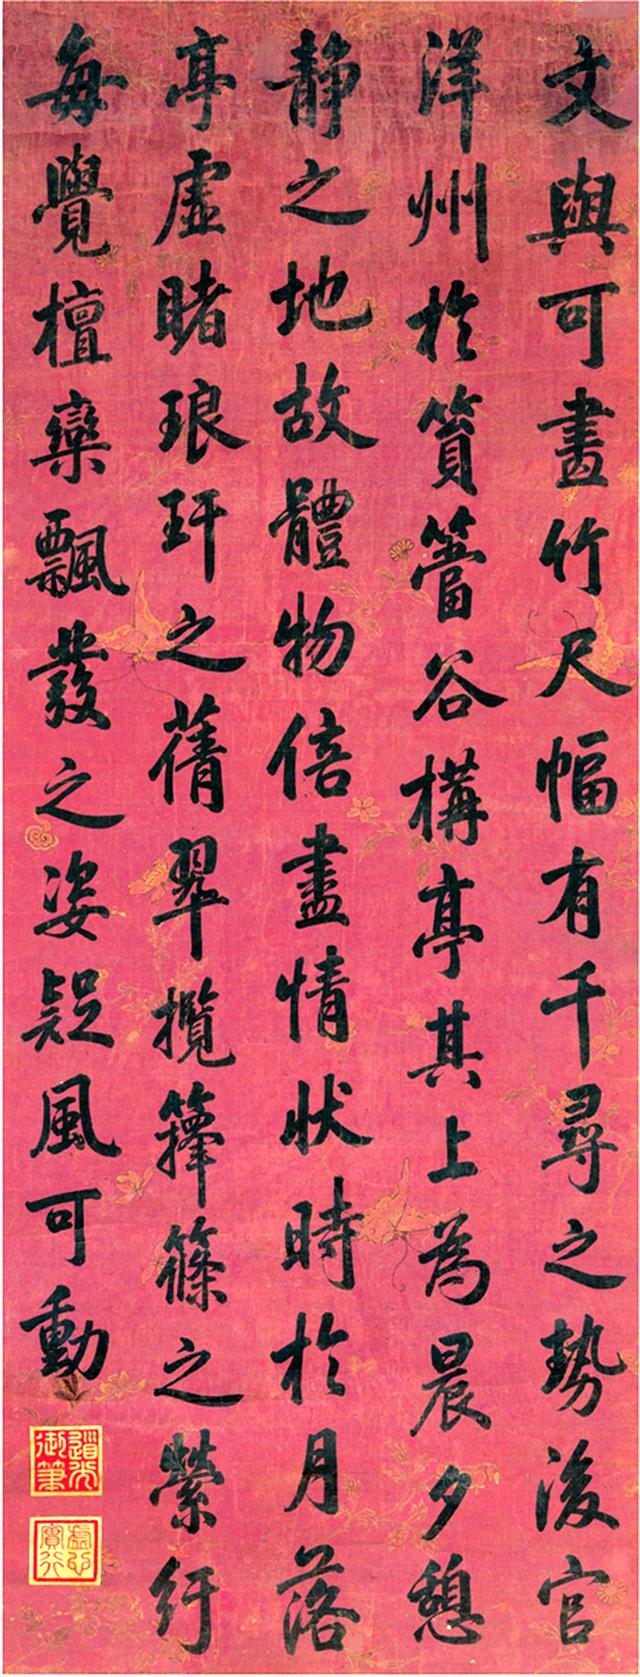 文與可畫竹尺幅有千尋之勢後官
洋州於篔簹谷構亭其上為晨夕憩
静之地故體物倍盡情狀時於月落
亭虛睹琅玕之蒨翠攬籜篠之縈紆
每覺檀欒飄發之姿疑風可動
道光御筆
虛心實行